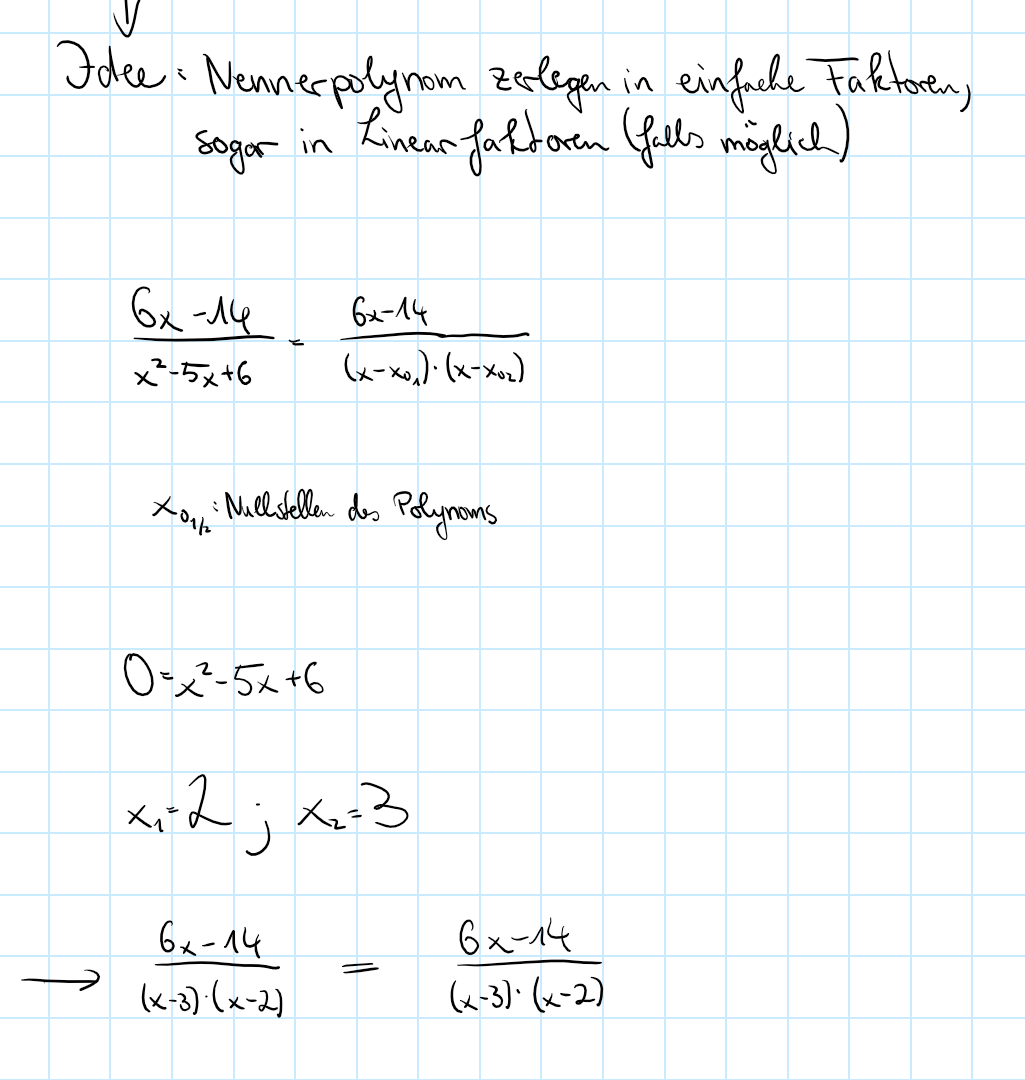 Idee: Nennerpolynom zerlegen in einfache Faktoren,
sogar in Linearfaktoren (falls möglich)
(6x-14)/(x²-5x+6) = (6x-14)/((x-x₀₁)·(x-x₀₂))
x₀₁/₂: Nullstellen des Polynoms
0=x²-5x+6
x₁=2 ; x₂=3
→ (6x-14)/((x-3)·(x-2)) = (6x-14)/((x-3)·(x-2))